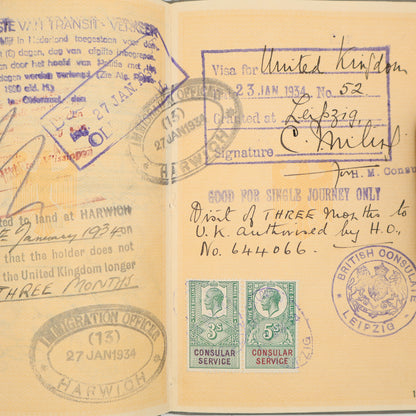 STE VAN TRANSIT - VERKEER
in Nederland toegestaan voor den
dagen, van afgifte
door het hoofd van Politie met
dagen worden verlengd
1920
Oldenzaal, den
27 JAN. 1934
OL
IMMIGRATION OFFICER
(13)
27 JAN 1934
HARWICH
to land at HARWICH
January 1934 on
that the holder does not
the United Kingdom longer
THREE MONTHS
IMMIGRATION OFFICER
(13)
27 JAN 1934
HARWICH
Visa for United Kingdom
23 JAN. 1934 No. 52
Granted at Leipzig,
Signature
for H. M. Consul
GOOD FOR SINGLE JOURNEY ONLY
Visit of THREE months to
U.K. authorised by H.O.,
No. 644066.
3s
CONSULAR
SERVICE
5s
CONSULAR
SERVICE
BRITISH CONSULATE
LEIPZIG